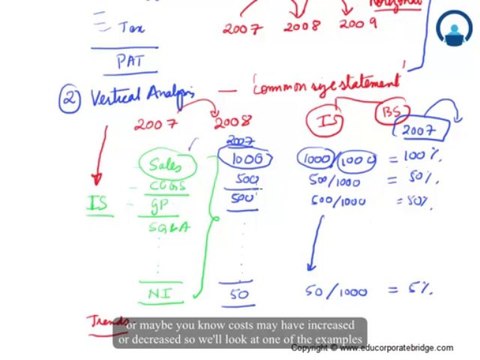 Horizontal
Tax
2007 2008 2009
PAT
② Vertical Analysis — "Common size statement"
2007 2008 IS BS
2007 2007
Sales 1000 1000/1000 = 100%
COGS 500 500/1000 = 50%
IS GP 500 500/1000 = 50%
SG&A
NI 50 50/1000 = 5%
Trends
or maybe you know costs may have increased
or decreased so we'll look at one of the examples
www.educorporatebridge.com